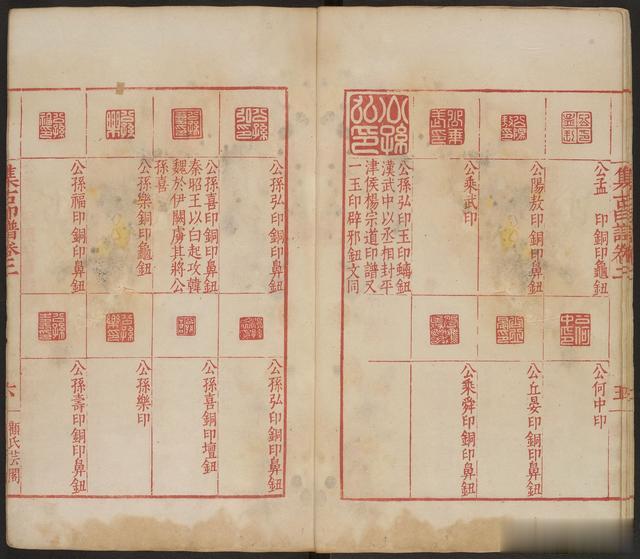 集古印譜卷二
公孟　印銅印龜鈕
公陽敖印銅印鼻鈕
公乘武印
公孫弘印玉印螭鈕
漢武中以丞相封平
津侯楊宗道印譜又
一玉印辟邪鈕文同
公何中印
公丘晏印銅印鼻鈕
公乘舜印銅印鼻鈕
五
公孫弘印銅印鼻鈕
公孫喜印銅印鼻鈕
秦昭王以白起攻韓
魏於伊闕虜其將公
孫喜
公孫樂銅印龜鈕
公孫福印銅印鼻鈕
公孫弘印銅印鼻鈕
公孫喜銅印壇鈕
公孫樂印
公孫壽印銅印鼻鈕
集古印譜卷二
六
顧氏芸閣